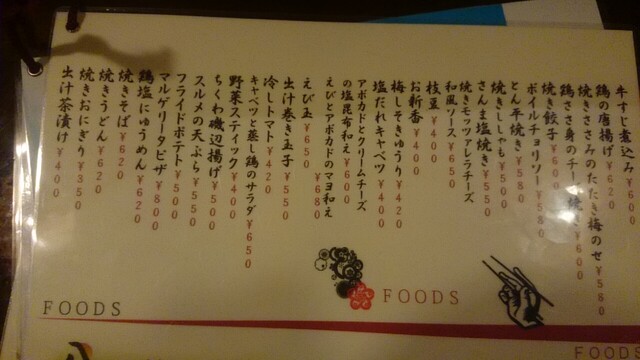 牛すじ煮込み ¥600
鶏の唐揚げ ¥620
焼きささみのたたき梅のせ ¥580
鶏ささ身のチーズ焼き ¥600
焼き餃子 ¥600
ボイルチョリソー ¥580
とん平焼き ¥580
焼きししゃも ¥500
さんま塩焼き ¥550
焼きモッツァレラチーズ
和風ソース ¥650
枝豆 ¥400
お新香 ¥400
梅しそきゅうり ¥420
塩だれキャベツ ¥400
アボカドとクリームチーズ
の塩昆布和え ¥600
えびとアボカドのマヨ和え
¥680
えび玉 ¥650
出汁巻き玉子 ¥550
冷しトマト ¥420
キャベツと蒸し鶏のサラダ ¥650
野菜スティック ¥400
ちくわ磯辺揚げ ¥500
スルメの天ぷら ¥550
フライドポテト ¥500
マルゲリータピザ ¥800
鶏塩にゅうめん ¥620
焼きそば ¥620
焼きうどん ¥620
焼きおにぎり ¥350
出汁茶漬け ¥400
FOODS
FOODS
FOODS